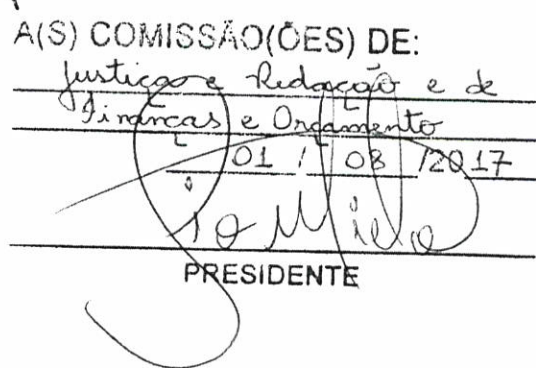 A(S) COMISSÃO(ÕES) DE:
Justiça e Redação e de
Finanças e Orçamento
01 / 08 /2017
PRESIDENTE